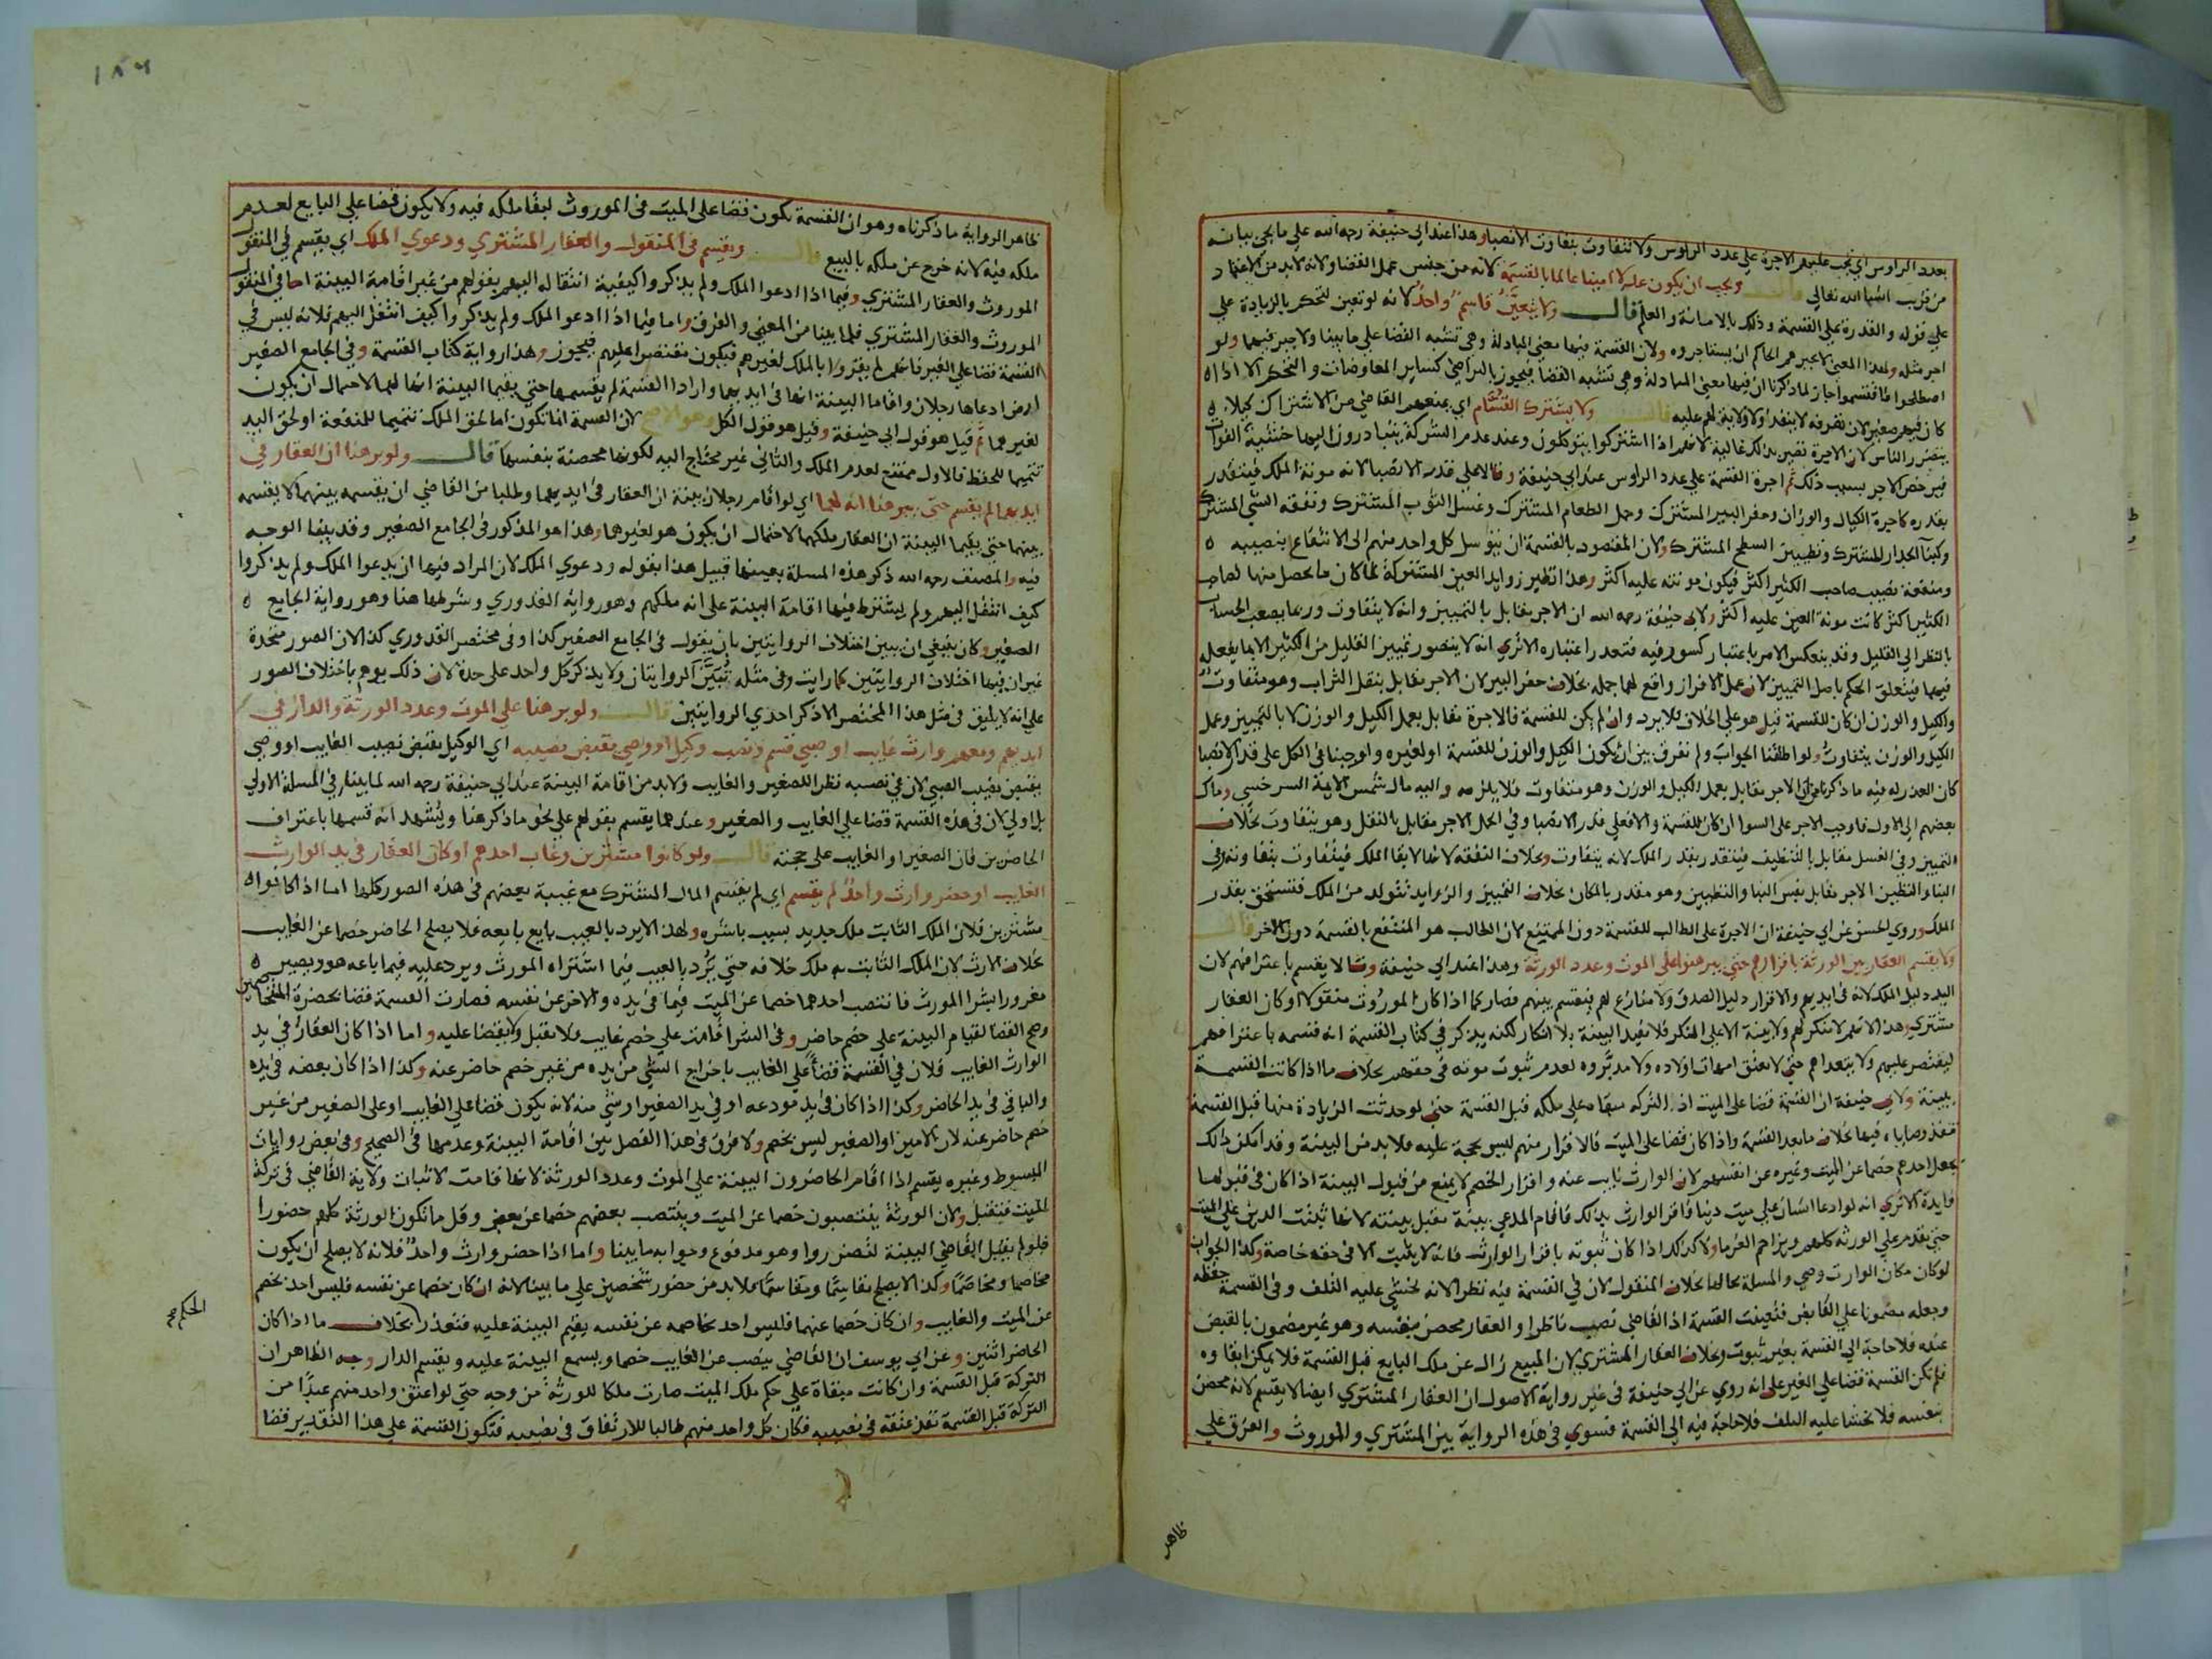 بعدد الراوس اي يجب عليهم الاجرة علي عدد الراوس ولا تتفاوت بتفاوت الانصبا وهذا عند ابي حنيفة رحمه الله علي ما يجي بيانه
من قريب ان شا الله تعالي قال ويجب ان يكون عدلا امينا عالما بالقسمة لانه من جنس عمل القضا ولانه لا بد من الاعتماد
علي قوله والقدرة علي القسمة وذلك بالامانة والعلم قال ولا يتعين قاسم واحد لانه لو تعين لتحكم بالزيادة علي
اجر مثله ولهذا المعني لا يجبرهم الحاكم ان يستاجروه ولان القسمة فيها معني المبادلة وهي تشبه القضا علي ما بينا ولا جبر فيهما ولو
اصطلحوا فاقتسموا جاز لما ذكرنا ان فيها معني المبادلة وهي تشبه القضا فيجوز بالتراضي كساير المعاوضات والتحكم الا اذا
كان فيهم صغير لان تصرفه لا ينفذ ولا ولاية لهم عليه قال ولا يشترك القسام اي يمنعهم القاضي من الاشتراك كيلا
يتضرر الناس لان الاجرة تصير بذلك غالية لانهم اذا اشتركوا يتوكلون وعند عدم الشركة يتبادرون اليها خشية الفوات
فيرخص الاجر بسبب ذلك ثم اجرة القسمة علي عدد الراوس عند ابي حنيفة وقالا علي قدر الانصبا لانه مونة الملك فيتقدر
بقدره كاجرة الكيال والوزان وحفر البير المشترك وحمل الطعام المشترك وغسل الثوب المشترك ونفقة الشي المشترك
وكبنا الجدار المشترك وتطيين السطح المشترك ولان المقصود بالقسمة ان يتوسل كل واحد منهم الي الانتفاع بنصيبه
ومنفعة نصيب صاحب الكثير اكثر فيكون مونته عليه اكثر وهذا نظير زوايد العين المشتركة لما كان ما يحصل منها لصاحب
الكثير اكثر كانت مونة العين عليه اكثر ولابي حنيفة رحمه الله ان الاجر مقابل بالتمييز وانه لا يتفاوت وربما يصعب الحساب
بالنظر الي القليل وقد ينعكس الامر باعتبار كسور فيه فتعذر اعتباره الا تري انه لا يتصور تمييز القليل من الكثير الا بما يفعله
فيهما فيتعلق الحكم باصل التمييز لان عمل الافراز واقع لهما جملة بخلاف حفر البير لان الاجر مقابل بنقل التراب وهو متفاوت
والكيل والوزن ان كان للقسمة قيل هو علي الخلاف فلا يرد وان لم يكن للقسمة فالاجرة مقابل بعمل الكيل والوزن لا بالتمييز وعمل
الكيل والوزن يتفاوت ولو اطلقنا الجواب ولم نفرق بين ان يكون الكيل والوزن للقسمة او لغيره واوجبنا في الكل علي قدر الانصبا
كان العذر له فيه ما ذكرنا من ان الاجر مقابل بعمل الكيل والوزن وهو متفاوت فلا يلزمه واليه مال شمس الايمة السرخسي ومال
بعضهم الي الاول فاوجب الاجر علي السوا ان كان للقسمة والا فعلي قدر الانصبا وفي الحمل الاجر مقابل بالنقل وهو يتفاوت بخلاف
التمييز وفي الغسل مقابل بالتنظيف فيتقدر بقدر الملك لانه يتفاوت وبخلاف النفقة لانها لابقا الملك فيتفاوت بتفاوته وفي
البنا والتطيين الاجر مقابل بنفس البنا والتطيين وهو مقدر بالمكان بخلاف التمييز والزوايد تتولد من الملك فتستحق بقدر
الملك وروي الحسن عن ابي حنيفة ان الاجرة علي الطالب للقسمة دون الممتنع لان الطالب هو المنتفع بالقسمة دون الاخر قال
ولا يقسم العقار بين الورثة باقرارهم حتي يبرهنوا علي الموت وعدد الورثة وهذا عند ابي حنيفة وقالا يقسم باعترافهم لان
اليد دليل الملك لانه في ايديهم والاقرار دليل الصدق ولا منازع لهم فيقسم بينهم فصار كما اذا كان الموروث منقولا او كان العقار
مشتري وهذا لانهم لا منكر لهم ولا بينة الا علي المنكر فلا تفيد البينة بلا انكار لكنه يذكر في كتاب القسمة انه قسمه باعترافهم
ليقتصر عليهم ولا يتعداهم حتي لا تعتق امهات اولاده ولا مدبروه لعدم ثبوت موته في حقهم بخلاف ما اذا كانت القسمة
ببينة ولابي حنيفة ان القسمة قضا علي الميت اذ التركة مبقاة علي ملكه قبل القسمة حتي لو حدثت الزيادة منها قبل القسمة
تنفذ وصاياه فيها بخلاف ما بعد القسمة واذا كان قضا علي الميت فالاقرار منهم ليس بحجة عليه فلا بد من البينة وقد امكن ذلك
بجعل احدهم خصما عن الميت وغيره عن انفسهم لان الوارث نايب عنه واقرار الخصم لا يمنع من قبول البينة اذا كان في قبولها
فايدة الا تري انه لو ادعا انسان علي ميت دينا فاقر الوارث بذلك فاقام المدعي بينة تقبل بينته لانها تثبت الدين علي الميت
حتي تقدم علي الورثة كلهم ويزاحم الغرما ولا كذلك اذا كان ثبوته باقرار الوارث فانه لا يثبت الا في حقه خاصة وكذا الجواب
لو كان مكان الوارث وصي والمسلة بحالها بخلاف المنقول لان في القسمة فيه نظرا لانه يخشي عليه التلف وفي القسمة حفظه
وجعله مضمونا علي القابض فتعينت القسمة اذ القاضي نصب ناظرا والعقار محصن بنفسه وهو غير مضمون بالقبض
عنده فلا حاجة الي القسمة بغير ثبوت وبخلاف العقار المشتري لان المبيع زال عن ملك البايع قبل القسمة فلا يمكن ابقاوه
فلم تكن القسمة قضا علي الغير علي انه روي عن ابي حنيفة في غير رواية الاصول ان العقار المشتري ايضا لا يقسم لانه محصن
بنفسه فلا يخشا عليه التلف فلا حاجة فيه الي القسمة فسوي في هذه الرواية بين المشتري والموروث والفرق علي
ظاهر
١٨٦
ظاهر الرواية ما ذكرناه وهو ان القسمة تكون قضا علي الميت في الموروث لبقا ملكه فيه ولا يكون قضا علي البايع لعدم
ملكه فيه لانه خرج عن ملكه بالبيع قال ويقسم في المنقول والعقار المشتري ودعوي الملك اي يقسم في المنقول
الموروث والعقار المشتري وفيما اذا ادعوا الملك ولم يذكروا كيفية انتقاله اليهم بقولهم من غير اقامة البينة اما في المنقول
الموروث والعقار المشتري فلما بينا من المعني والفرق واما فيما اذا ادعوا الملك ولم يذكروا كيف انتقل اليهم فلانه ليس في
القسمة قضا علي الغير فانهم لم يقروا بالملك لغيرهم فيكون مقتصرا عليهم فيجوز وهذا رواية كتاب القسمة وفي الجامع الصغير
ارض ادعاها رجلان واقاما البينة انها في ايديهما وارادا القسمة لم يقسمها حتي يقيما البينة انها لهما لاحتمال ان يكون
لغيرهما ثم قيل هو قول ابي حنيفة وقيل هو قول الكل وهو الاصح لان القسمة اما تكون اما لحق الملك تتميما للمنفعة او لحق اليد
تتميما للحفظ فالاول ممتنع لعدم الملك والثاني غير محتاج اليه لكونها محصنة بنفسها قال ولو برهنا ان العقار في
ايديهما لم يقسم حتي يبرهنا انه لهما اي لو اقام رجلان بينة ان العقار في ايديهما وطلبا من القاضي ان يقسمه بينهما لا يقسمه
بينهما حتي يقيما البينة ان العقار ملكهما لاحتمال ان يكون هو لغيرهما وهذا هو المذكور في الجامع الصغير وقد بينا الوجه
فيه والمصنف رحمه الله ذكر هذه المسلة بعينها قبيل هذا بقوله ودعوي الملك لان المراد فيها ان يدعوا الملك ولم يذكروا
كيف انتقل اليهم ولم يشترط فيها اقامة البينة علي انه ملكهم وهو رواية القدوري وشرطها هنا وهو رواية الجامع
الصغير وكان ينبغي ان يبين اختلاف الروايتين بان يقول في الجامع الصغير كذا وفي مختصر القدوري كذا لان الصور متحدة
غير ان فيها اختلاف الروايتين كما رايت وفي مثله تبين الروايتان ولا يذكر كل واحد علي حدة لان ذلك يوهم باختلاف الصور
علي انه لا يليق في مثل هذا المختصر الا ذكر احدي الروايتين قال ولو برهنا علي الموت وعدد الورثة والدار في
ايديهم ومعهم وارث غايب او صبي قسم ونصب وكيل او وصي يقبض نصيبه اي الوكيل يقبض نصيب الغايب او وصي
يقبض نصيب الصبي لان في نصبه نظرا للصغير والغايب ولا بد من اقامة البينة عند ابي حنيفة رحمه الله لما بينا في المسلة الاولي
بل اولي لان في هذه القسمة قضا علي الغايب والصغير وعندهما يقسم بقولهم علي نحو ما ذكر هنا ويشهد انه قسمها باعتراف
الحاضرين فان الصغير او الغايب علي حجته قال ولو كانوا مشترين وغاب احدهم او كان العقار في يد الوارث
الغايب او حضر وارث واحد لم يقسم اي لم يقسم المال المشترك مع غيبة بعضهم في هذه الصور كلها اما اذا كانوا
مشترين فلان الملك الثابت ملك جديد بسبب باشره ولهذا لا يرد بالعيب بايع بايعه فلا يصلح الحاضر خصما عن الغايب
بخلاف الارث لان الملك الثابت به ملك خلافه حتي يرد بالعيب فيما اشتراه المورث ويرد عليه فيما باعه هو ويصير
مغرورا بشرا المورث فانتصب احدهما خصما عن الميت فيما في يده والاخر عن نفسه فصارت القسمة قضا بحضرة المتخاصمين
وصح القضا لقيام البينة علي خصم حاضر وفي الشرا قامت علي خصم غايب فلا تقبل ولا يقضا عليه واما اذا كان العقار في يد
الوارث الغايب فلان في القسمة قضا علي الغايب باخراج الشي من يده من غير خصم حاضر عنه وكذا اذا كان بعضه في يده
والباقي في يد الحاضر وكذا اذا كان في يد مودعه او في يد الصغير او شي منه لانه يكون قضا علي الغايب او علي الصغير من غير
خصم حاضر عنه لان الامين او الصغير ليس بخصم ولا فرق في هذا الفصل بين اقامة البينة وعدمها في الصحيح وفي بعض روايات
المبسوط وغيره يقسم اذا اقام الحاضرون البينة علي الموت وعدد الورثة لانها قامت لاثبات ولاية القاضي في تركة
الميت فتقبل ولان الورثة ينتصبون خصما عن الميت وينتصب بعضهم خصما عن بعض وقل ما تكون الورثة كلهم حضورا
فلو لم يقبل القاضي البينة لتضرروا وهو مدفوع وجوابه ما بينا واما اذا حضر وارث واحد فلانه لا يصلح ان يكون
مخاصما ومخاصما وكذا لا يصلح مقاسما ومقاسما فلا بد من حضور شخصين علي ما بينا لانه ان كان خصما عن نفسه فليس احد بخصم
عن الميت والغايب وان كان خصما عنهما فليس احد يخاصمه عن نفسه يقيم البينة عليه فتعذر بخلاف ما اذا كان
الحكم صح
الحاضر اثنين وعن ابي يوسف ان القاضي ينصب عن الغايب خصما ويسمع البينة عليه ويقسم الدار وجه الظاهر ان
التركة قبل القسمة وان كانت مبقاة علي حكم ملك الميت صارت ملكا للورثة من وجه حتي لو اعتق واحد منهم عبدا من
التركة قبل القسمة نفذ عتقه في نصيبه فكان كل واحد منهم طالبا للارتفاق في نصيبه فتكون القسمة علي هذا التقدير قضا